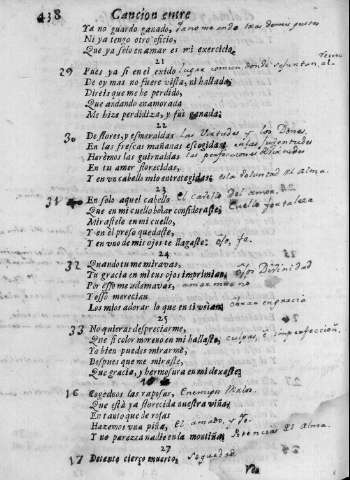 438 Cancion entre
Ya no guardo ganado,
Ni ya tengo otro oficio,
Que ya solo en amar es mi exercicio.
21
29 Pues ya si en el exido lugar comun, donde
De oy mas no fuere vista, ni hallada;
Direis que me he perdido,
Que andando enamorada
Me hize perdidiza, y fui ganada;
22
30 De flores, y esmeraldas las Virtudes y los Dones
En las frescas mañanas escogidas
Haremos las guirnaldas las perfecciones
En tu amor florecidas,
Y en vn cabello mio entretegidas; la voluntad del Alma.
23
31 En solo aquel cabello El cabello del amor.
Que en mi cuello bolar consideraste; Cuello fortaleza
Mirastele en mi cuello,
Y en el preso quedaste,
Y en vno de mis ojos te llagaste: ojo, fe.
24
32 Quando tu me miravas,
Tu gracia en mi tus ojos imprimian; Ojos Divinidad
Por esso me adamavas, amar mucho
Y esso merecian
Los mios adorar lo que en ti veian; obrar en gracia
25
33 No quieras despreciarme,
Que si color moreno en mi hallaste, culpas, è imperfección.
Ya bien puedes mirarme,
Despues que me miraste,
Que gracia, y hermosura en mi dexaste;
16 Cogednos las raposas, Enemigos Malos.
Que està ya florecida nuestra viña;
En tanto que de rosas
Hazemos vna piña, El amado, y yo.
Y no parezca nadie en la montiña; Potencias del Alma.
27
17 Detente cierço muerto, Sequedad
Ven